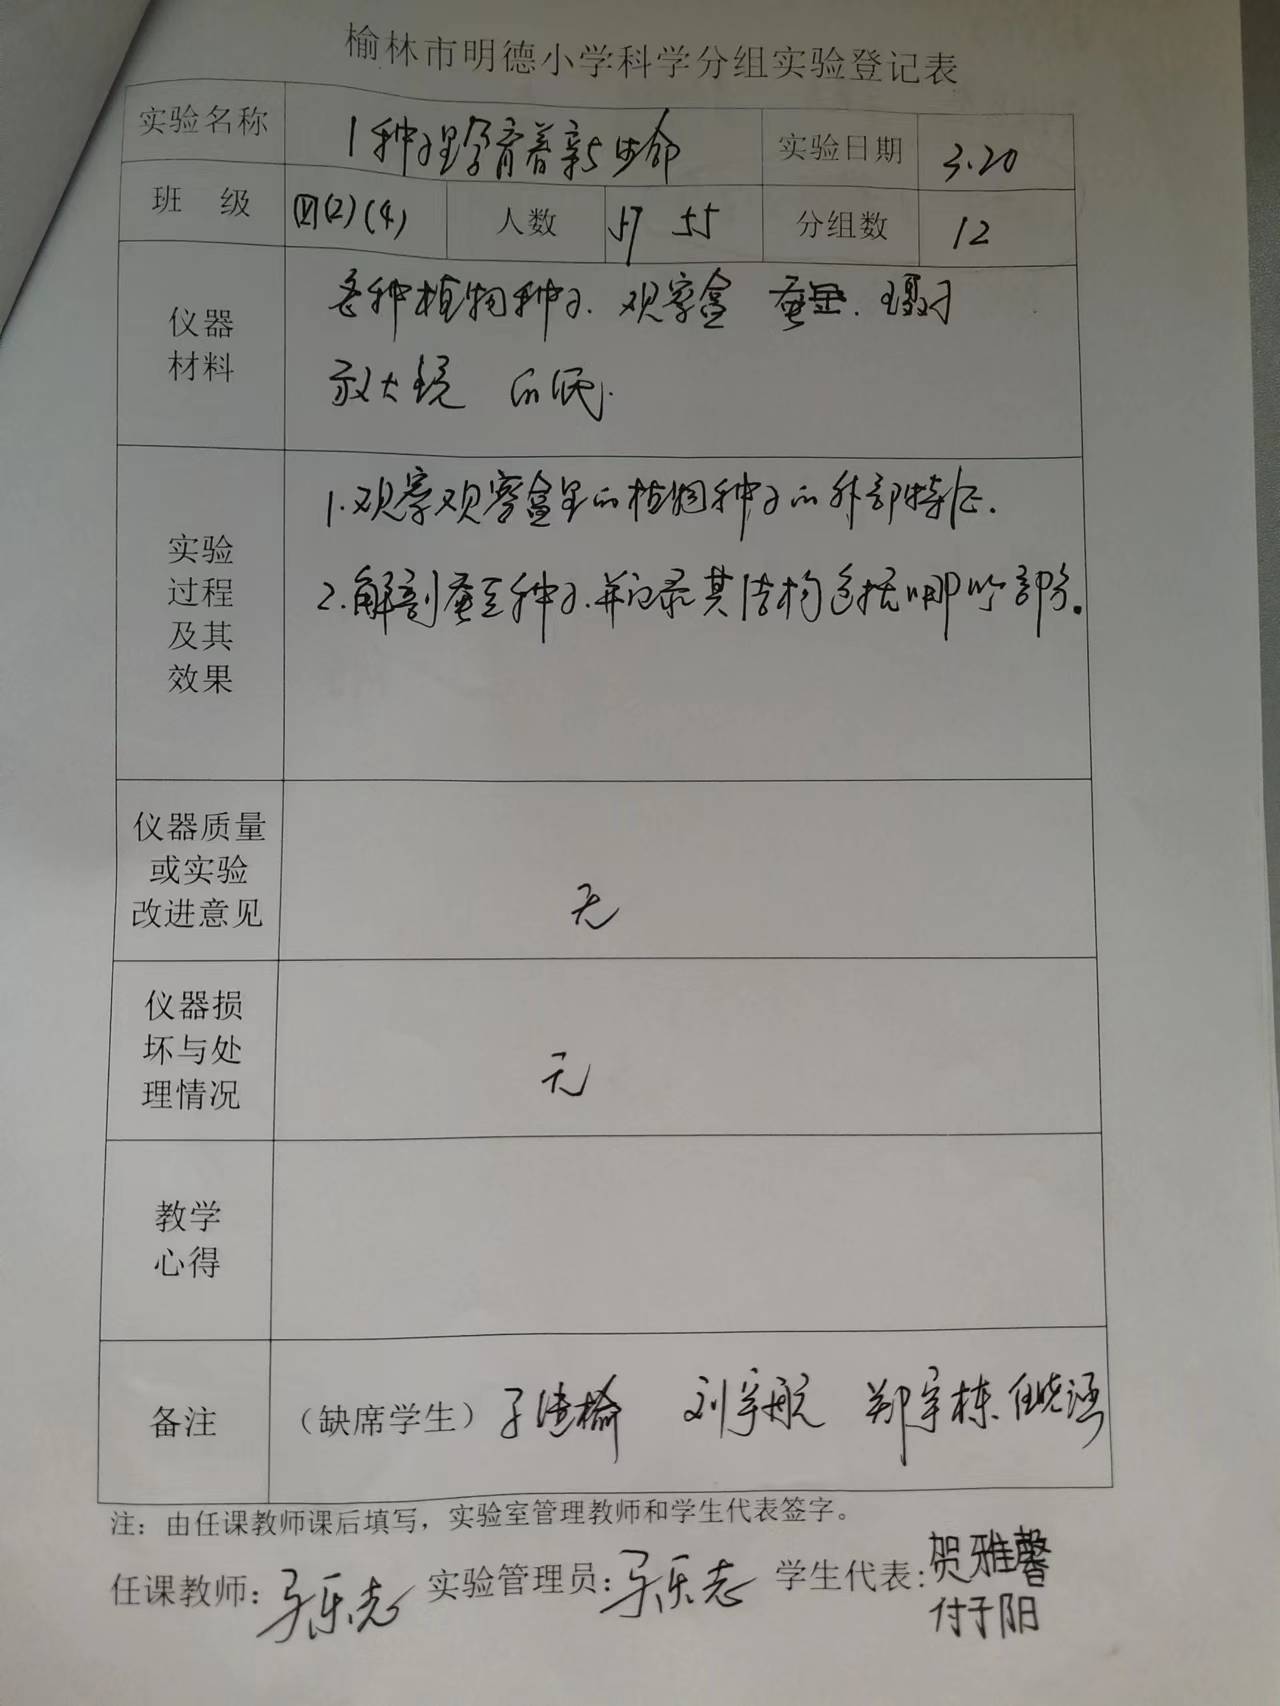 榆林市明德小学科学分组实验登记表
实验名称 1 种子里孕育着新生命 实验日期 3.20
班 级 四(2)(4) 人数 57 55 分组数 12
仪器材料 各种植物种子. 观察盒 蚕豆. 镊子
放大镜
实验过程及其效果 1.观察观察盒里的植物种子的外部特征.
2.解剖蚕豆种子.并记录其结构包括哪些部分.
仪器质量或实验改进意见 无
仪器损坏与处理情况 无
教学心得
备注 (缺席学生) 刘宇航 郑宇栋 任晓涵
注：由任课教师课后填写，实验室管理教师和学生代表签字。
任课教师: 实验管理员: 学生代表: 贺雅馨
付子阳